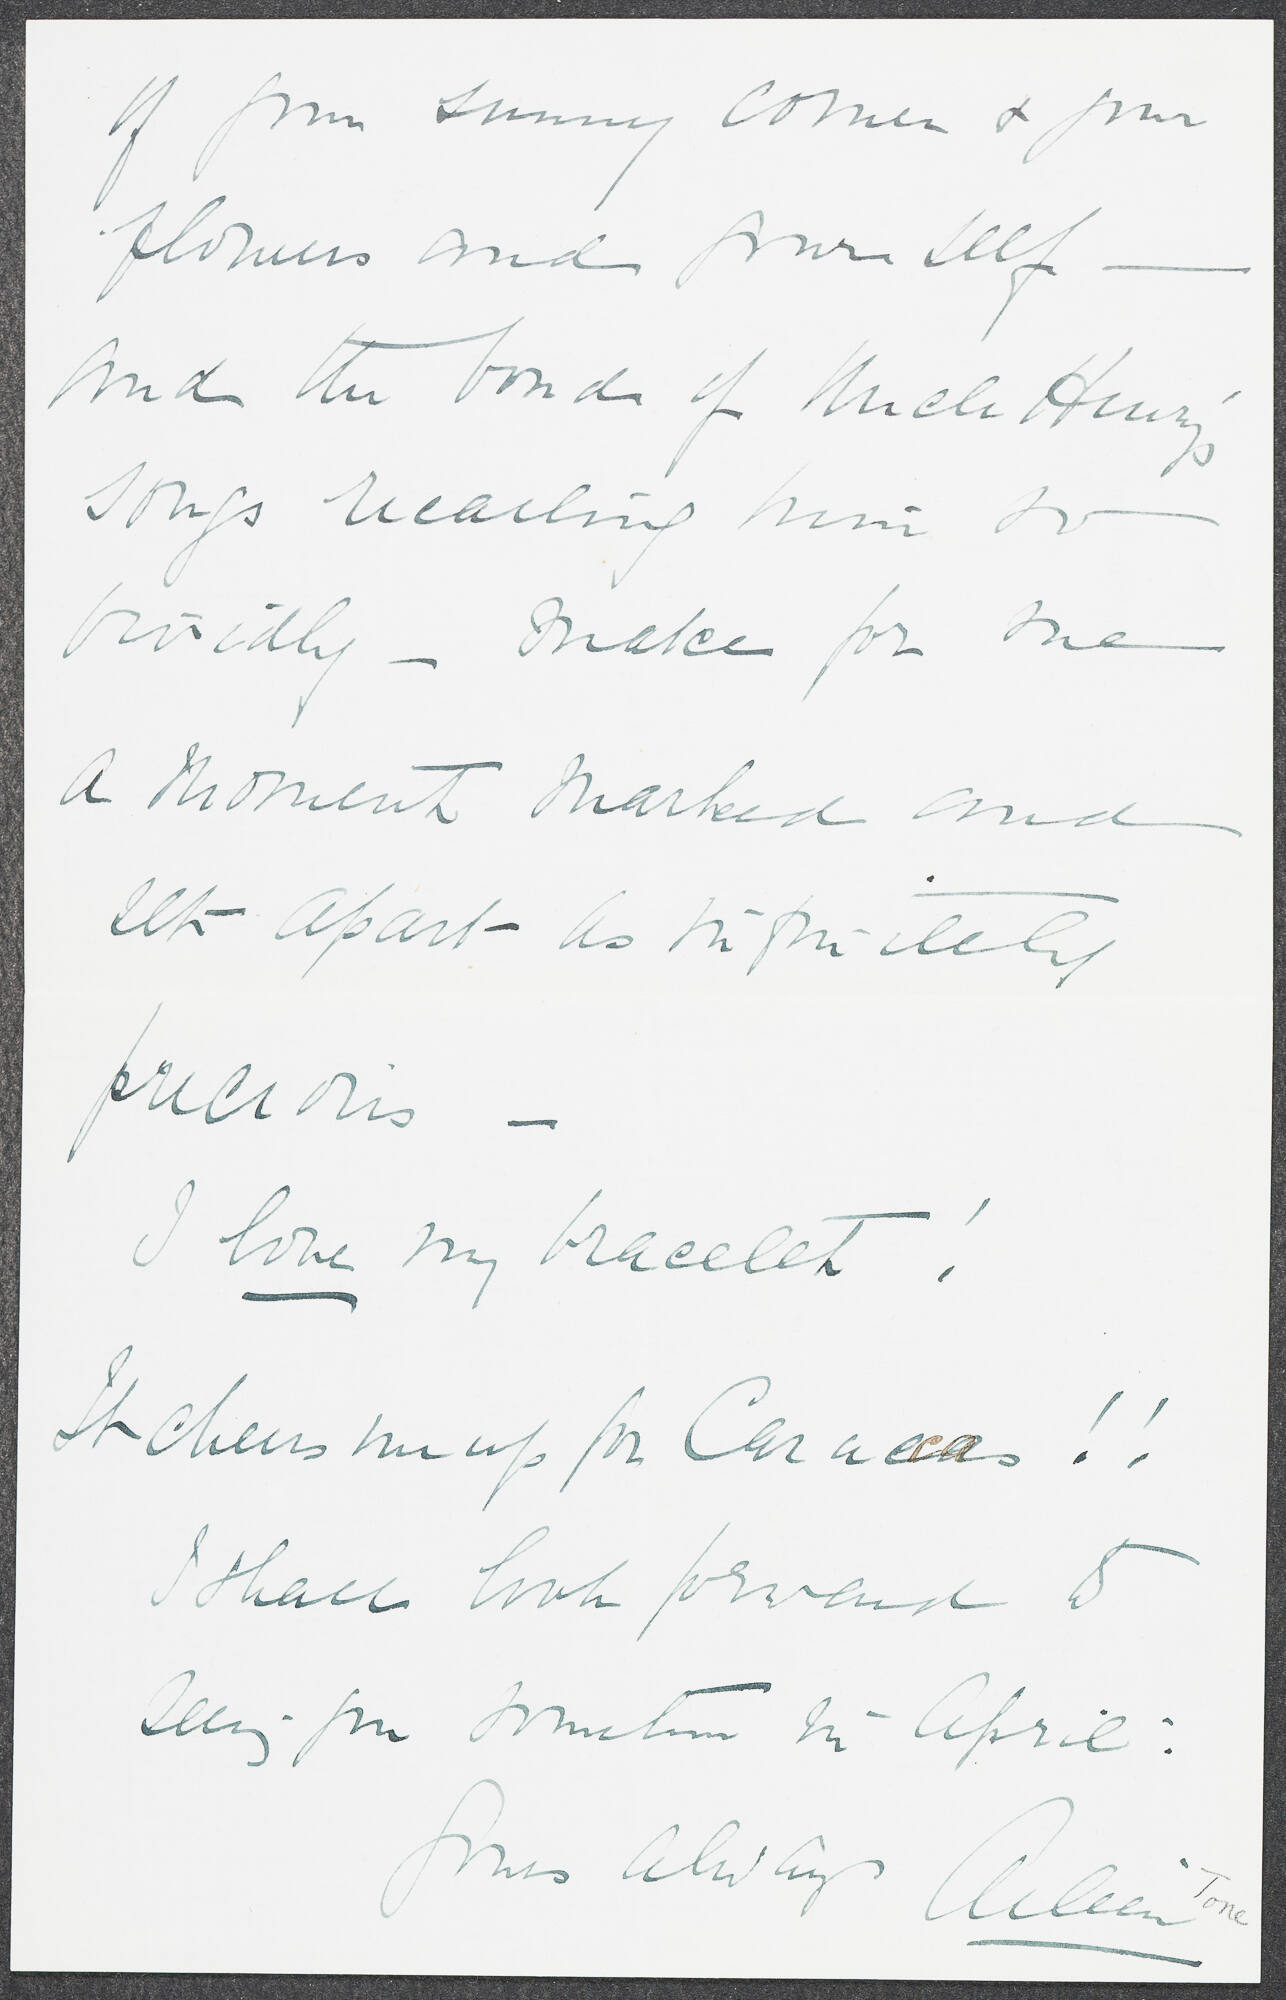 of your sunny corner & your
flowers and yourself —
and the bond of Uncle Henry's
songs recalling him so
vividly — make for me
a moment marked and
set apart as infinitely
precious —
I love my bracelet!
It cheers me up for Caracas!!
I shall look forward to
seeing you sometime in April:
Yours always Aileen Tone